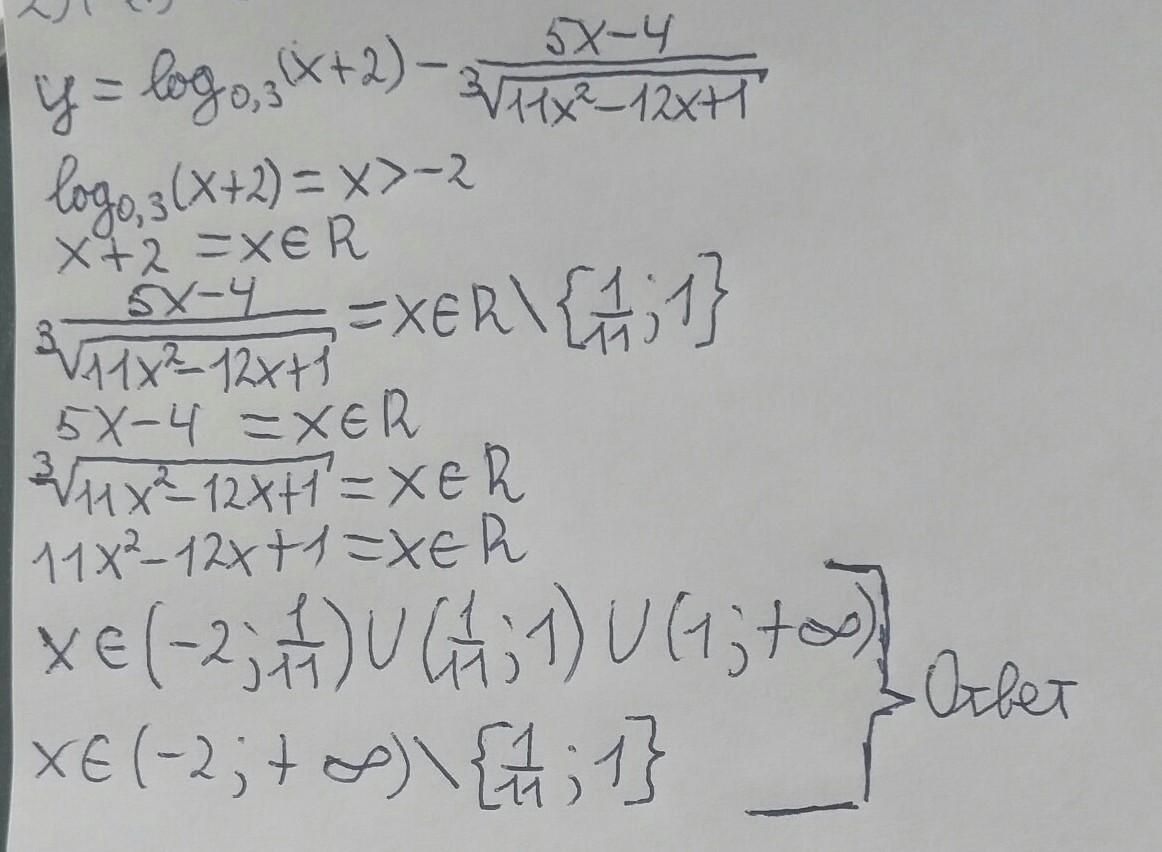 y = log₀,₃(x+2) − (5x−4)/∛(11x²−12x+1)
log₀,₃(x+2) = x>−2
x+2 = x∈R
(5x−4)/∛(11x²−12x+1) = x∈R\{1/11; 1}
5x−4 = x∈R
∛(11x²−12x+1) = x∈R
11x²−12x+1 = x∈R
x∈(−2; 1/11)∪(1/11; 1)∪(1; +∞)
x∈(−2; +∞)\{1/11; 1}
Ответ